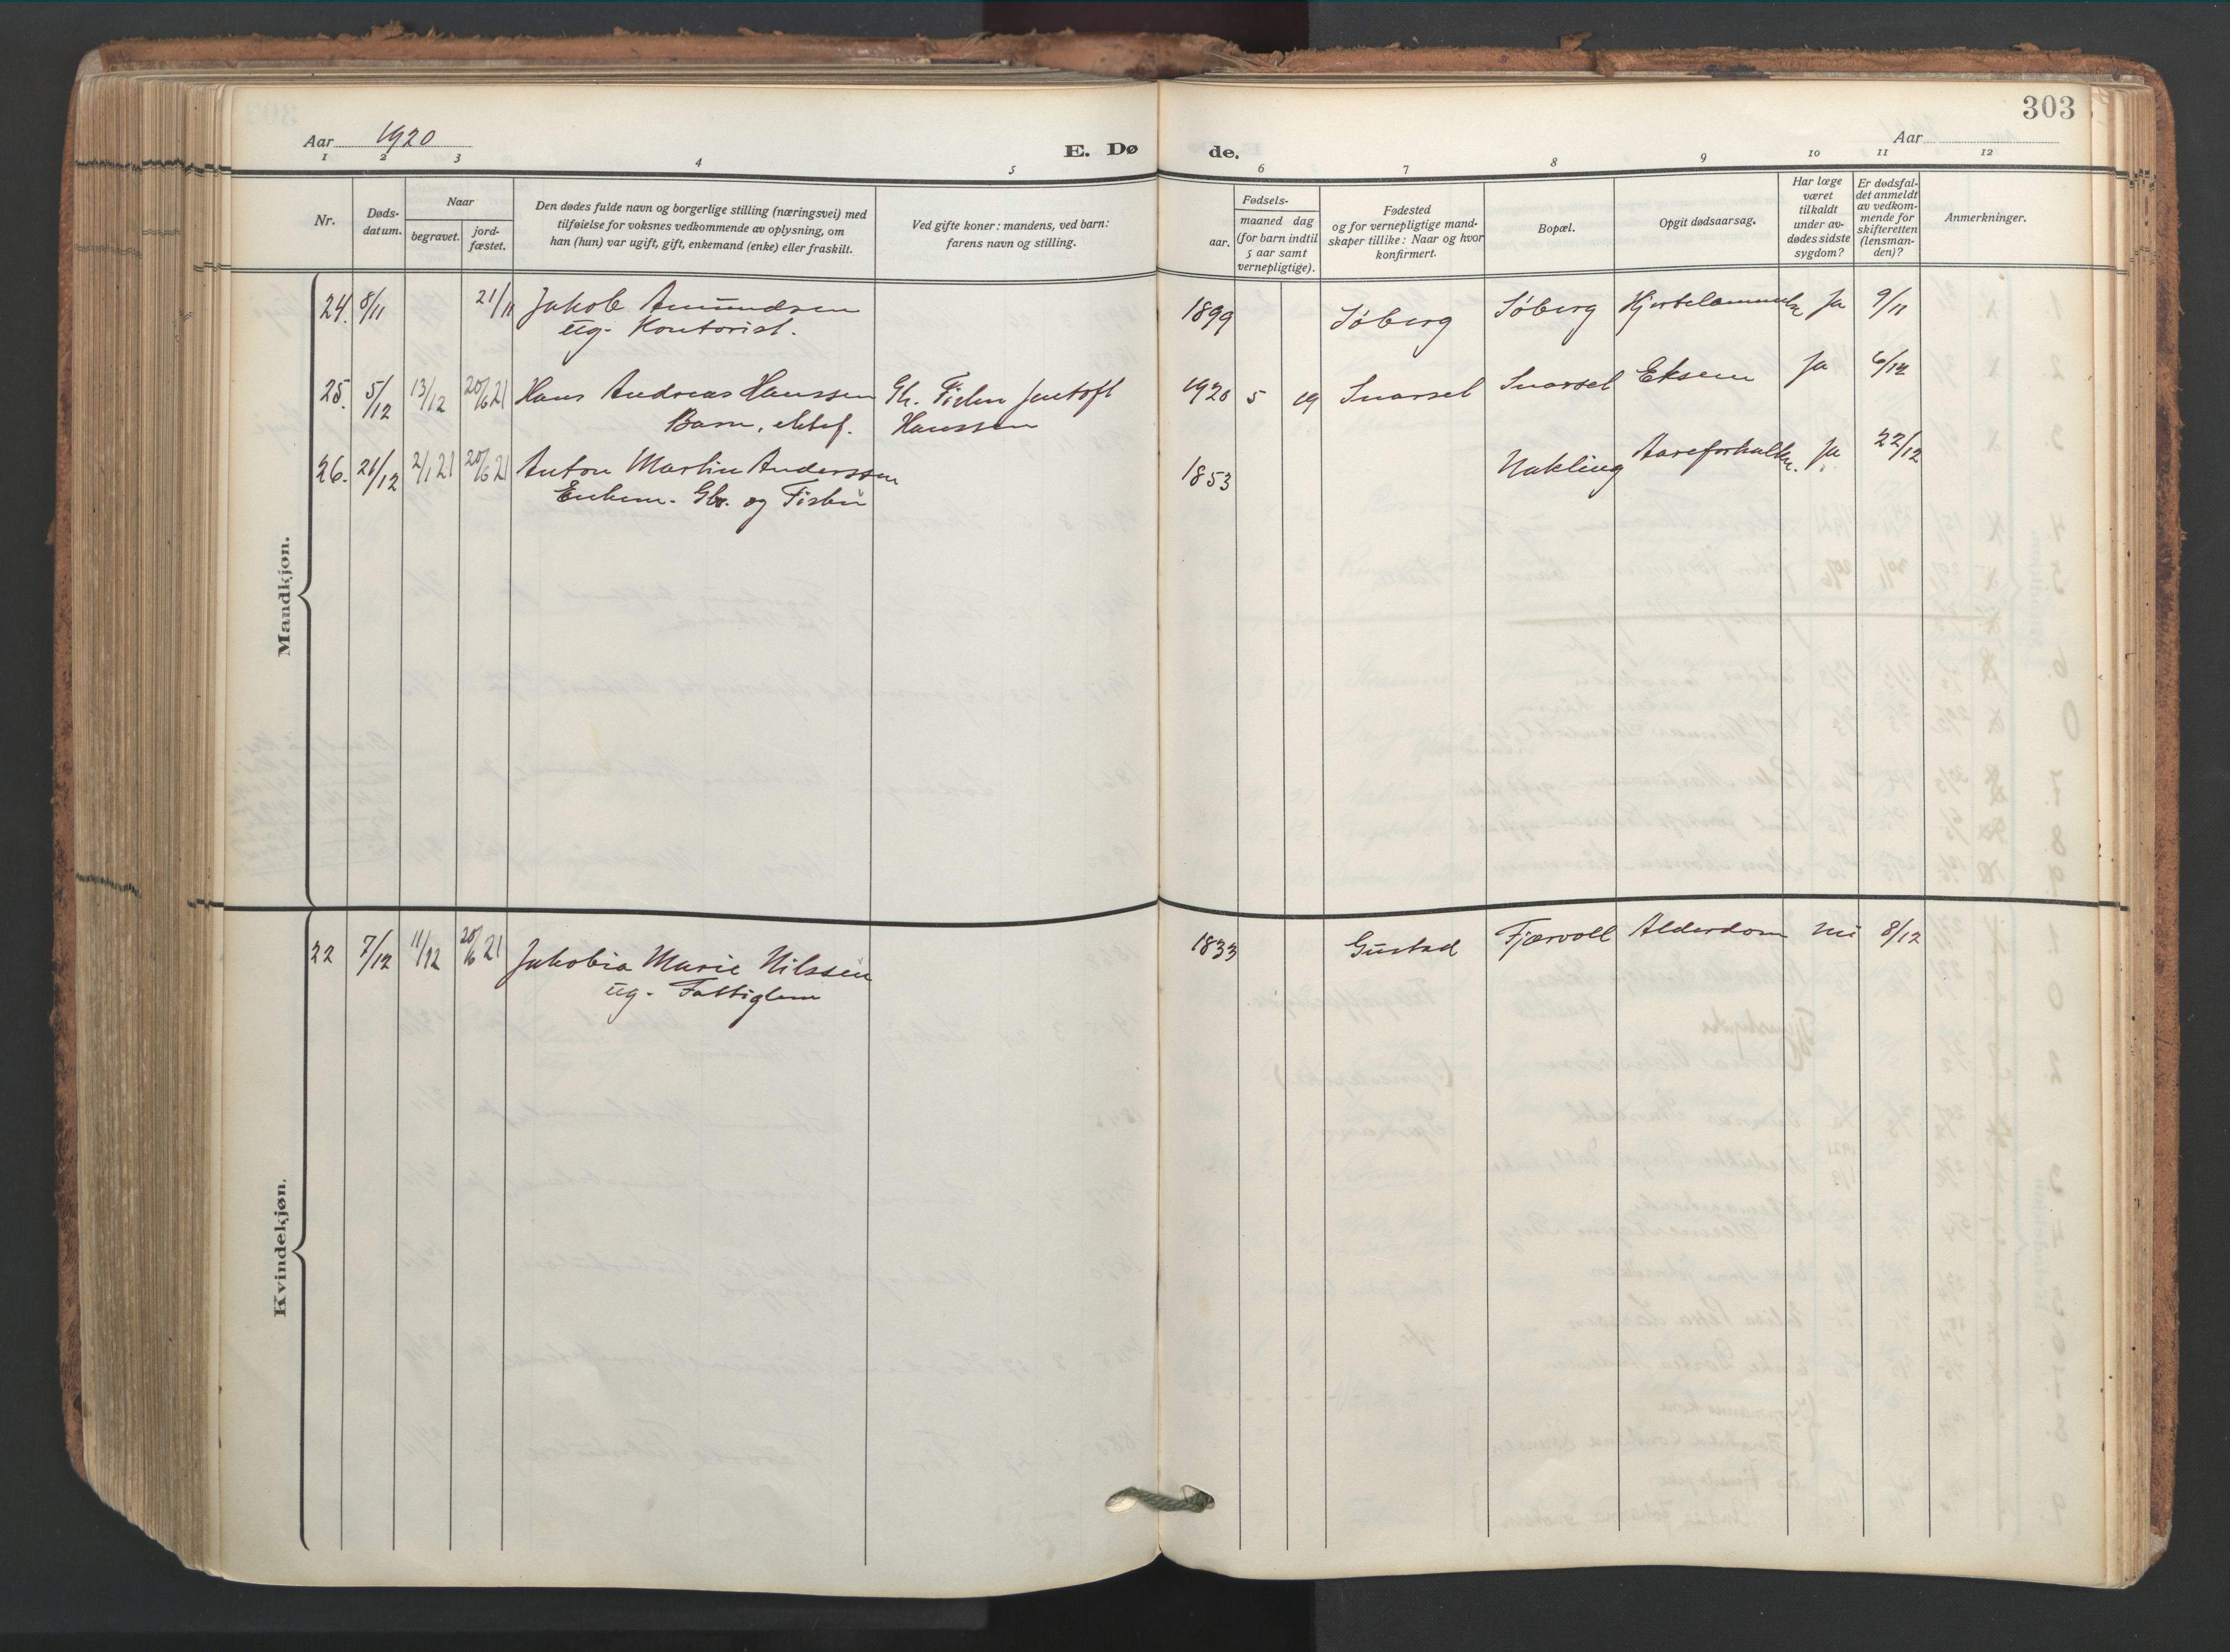 303
Aar 1920
E. Dø de.
Aar
1 2 3 4 5 6 7 8 9 10 11 12
Nr.
Døds-
datum.
Naar
begravet.
jord-
fæstet.
Den dødes fulde navn og borgerlige stilling (næringsvei) med
tilføielse for voksnes vedkommende av oplysning, om
han (hun) var ugift, gift, enkemand (enke) eller fraskilt.
Ved gifte koner: mandens, ved barn:
farens navn og stilling.
Fødsels-
aar.
maaned dag
(for barn indtil
5 aar samt
vernepligtige).
Fødested
og for vernepligtige mand-
skaper tillike: Naar og hvor
konfirmert.
Bopæl.
Opgit dødsaarsag.
Har læge
været
tilkaldt
under av-
dødes sidste
sygdom?
Er dødsfal-
det anmeldt
av vedkom-
mende for
skifteretten
(lensman-
den)?
Anmerkninger.
Mandkjøn.
24. 8/11 21/11 Jakob Amundsen 1899 Søberg Søberg Ja 9/11
ug. Kontorist.
25. 5/12 13/12 20/6 21 Hans Andreas Hanssen Gb. Fisker Jentoft 1920 5 19 Snarset Snarset Eksem Ja 6/12
Barn, ektef. Hanssen
26. 21/12 2/1 21 20/6 21 Anton Martin Anderssen 1853 Nakling Aareforkalkn. Ja 22/12
Enkem. Gbr. og Fisker
Kvindekjøn.
22 7/12 11/12 20/6 21 Jakobia Marie Nilssen 1833 Gustad Fjærvoll Alderdom nei 8/12
ug. Fattiglem